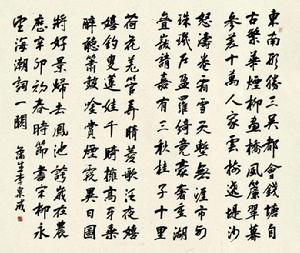 東南形勝三吳都會錢塘自
古繁華煙柳畫橋風簾翠幕
參差十萬人家雲樹繞堤沙
怒濤卷霜雪天塹無涯市列
珠璣戶盈羅綺競豪奢重湖
疊巘清嘉有三秋桂子十里
荷花羌管弄晴菱歌泛夜
嬉釣叟蓮娃千騎擁高牙乘
醉聽簫鼓吟賞煙霞異日圖
將好景歸去鳳池誇歲在農
曆辛卯初春時節書宋柳永
望海潮詞一闋